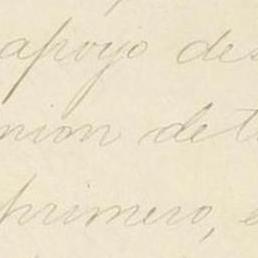 apoyo des
nion de t
primero, e